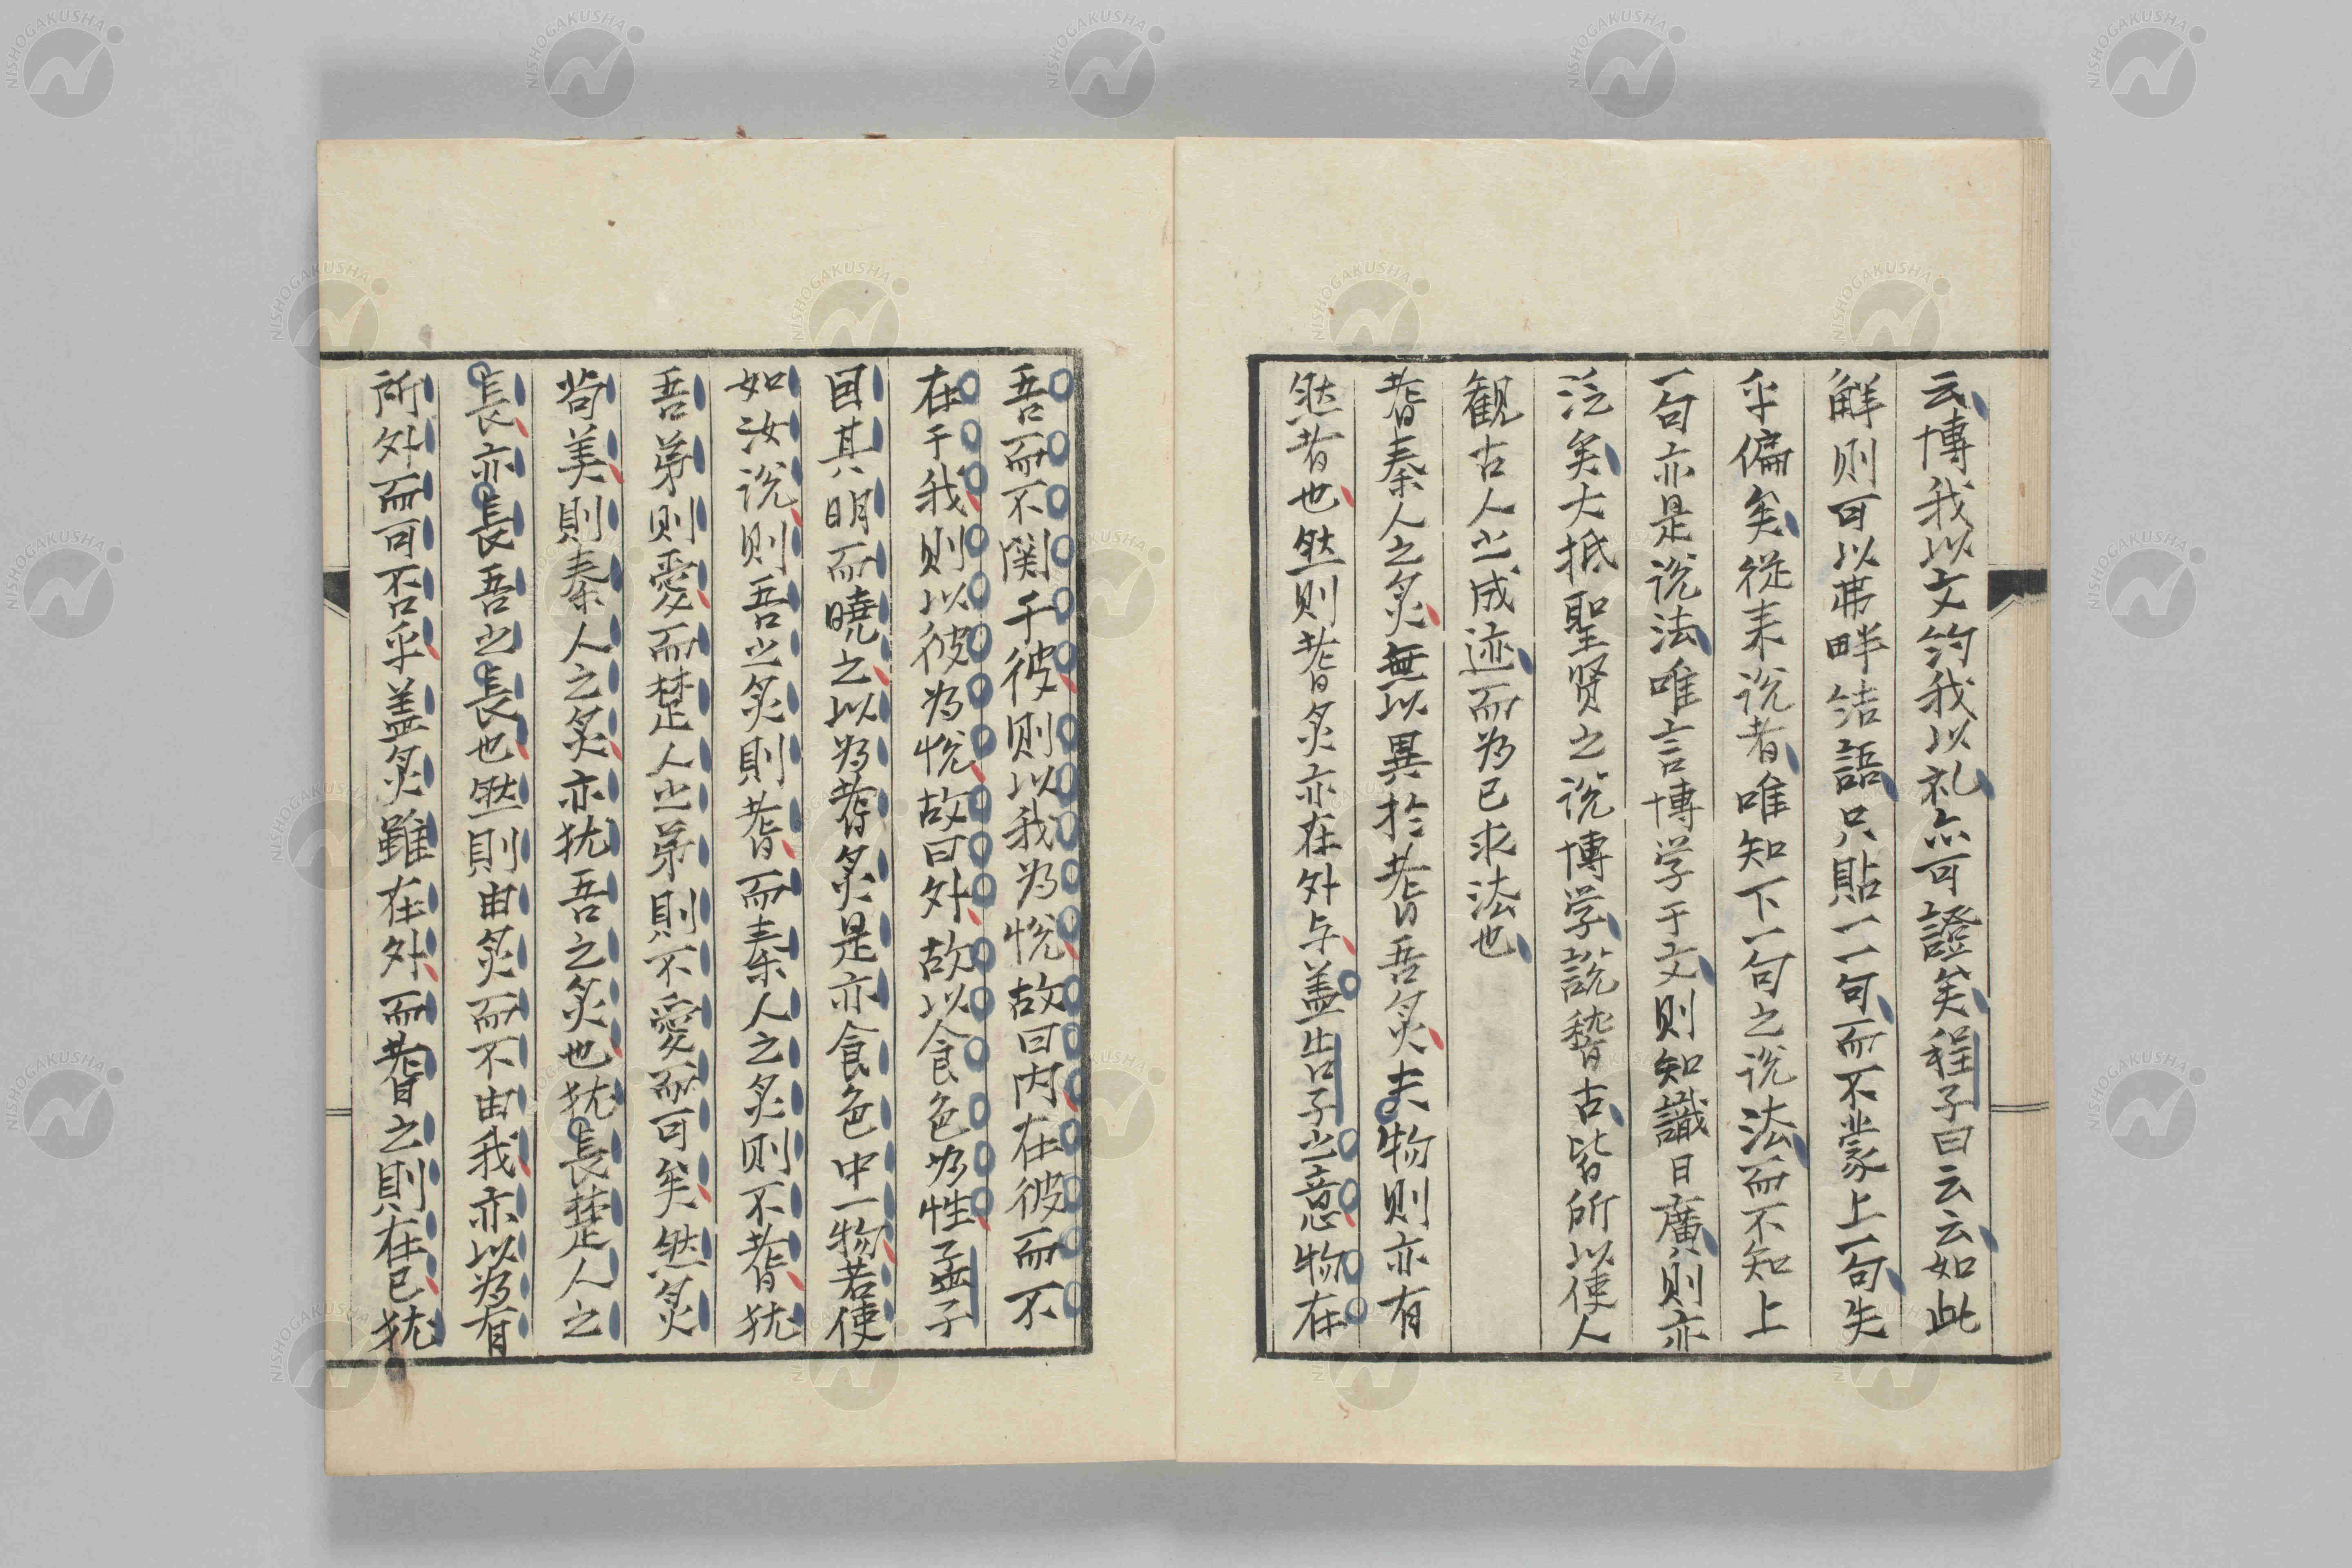 云博我以文約我以礼亦可證矣程子曰云云如此
解則可以弗畔結語只貼一一句而不蒙上一句失
乎偏矣從来説者唯知下一句之説法而不知上
一句亦是説法唯言博学于文則知識日廣則亦
泛矣大抵聖贤之説博学説稽古皆所以使人
観古人之成迹而為己求法也
耆秦人之炙無以異於耆吾炙夫物則亦有
然者也然則耆炙亦在外与盖告子之意物在
吾而不関于彼則以我為悦故曰内在彼而不
在于我則以彼為悦故曰外故以食色為性孟子
因其明而曉之以為耆炙是亦食色中一物若使
如汝説則吾之炙則耆而秦人之炙則不耆犹
吾弟則愛而楚人之弟則不愛而可矣然炙
苟美則秦人之炙亦犹吾之炙也犹長楚人之
長亦長吾之長也然則由炙而不由我亦以為有
所外而可否乎盖炙雖在外而耆之則在己犹
NISHOGAKUSHA